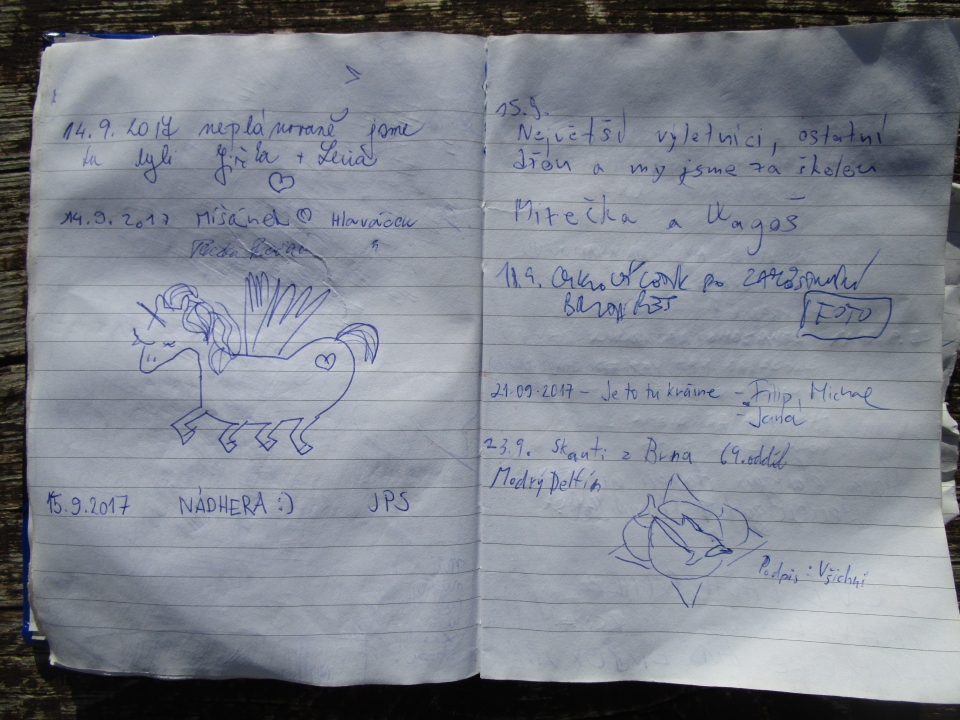 14.9.2017 neplánovaně jsme
tu byli Jiřka + Lenia
14.9.2017 Míšánek Hlaváčků
15.9.2017 NÁDHERA :) JPS
15.9.
Největší výletníci, ostatní
dřou a my jsme za školou
Mirečka a Vagoš
18.9. po
FOTO
21.09.2017 - Je to tu krásne - Filip, Michal
- Jana
23.9. Skauti z Brna 69. oddíl
Modrý Delfín
Podpis: Všichni